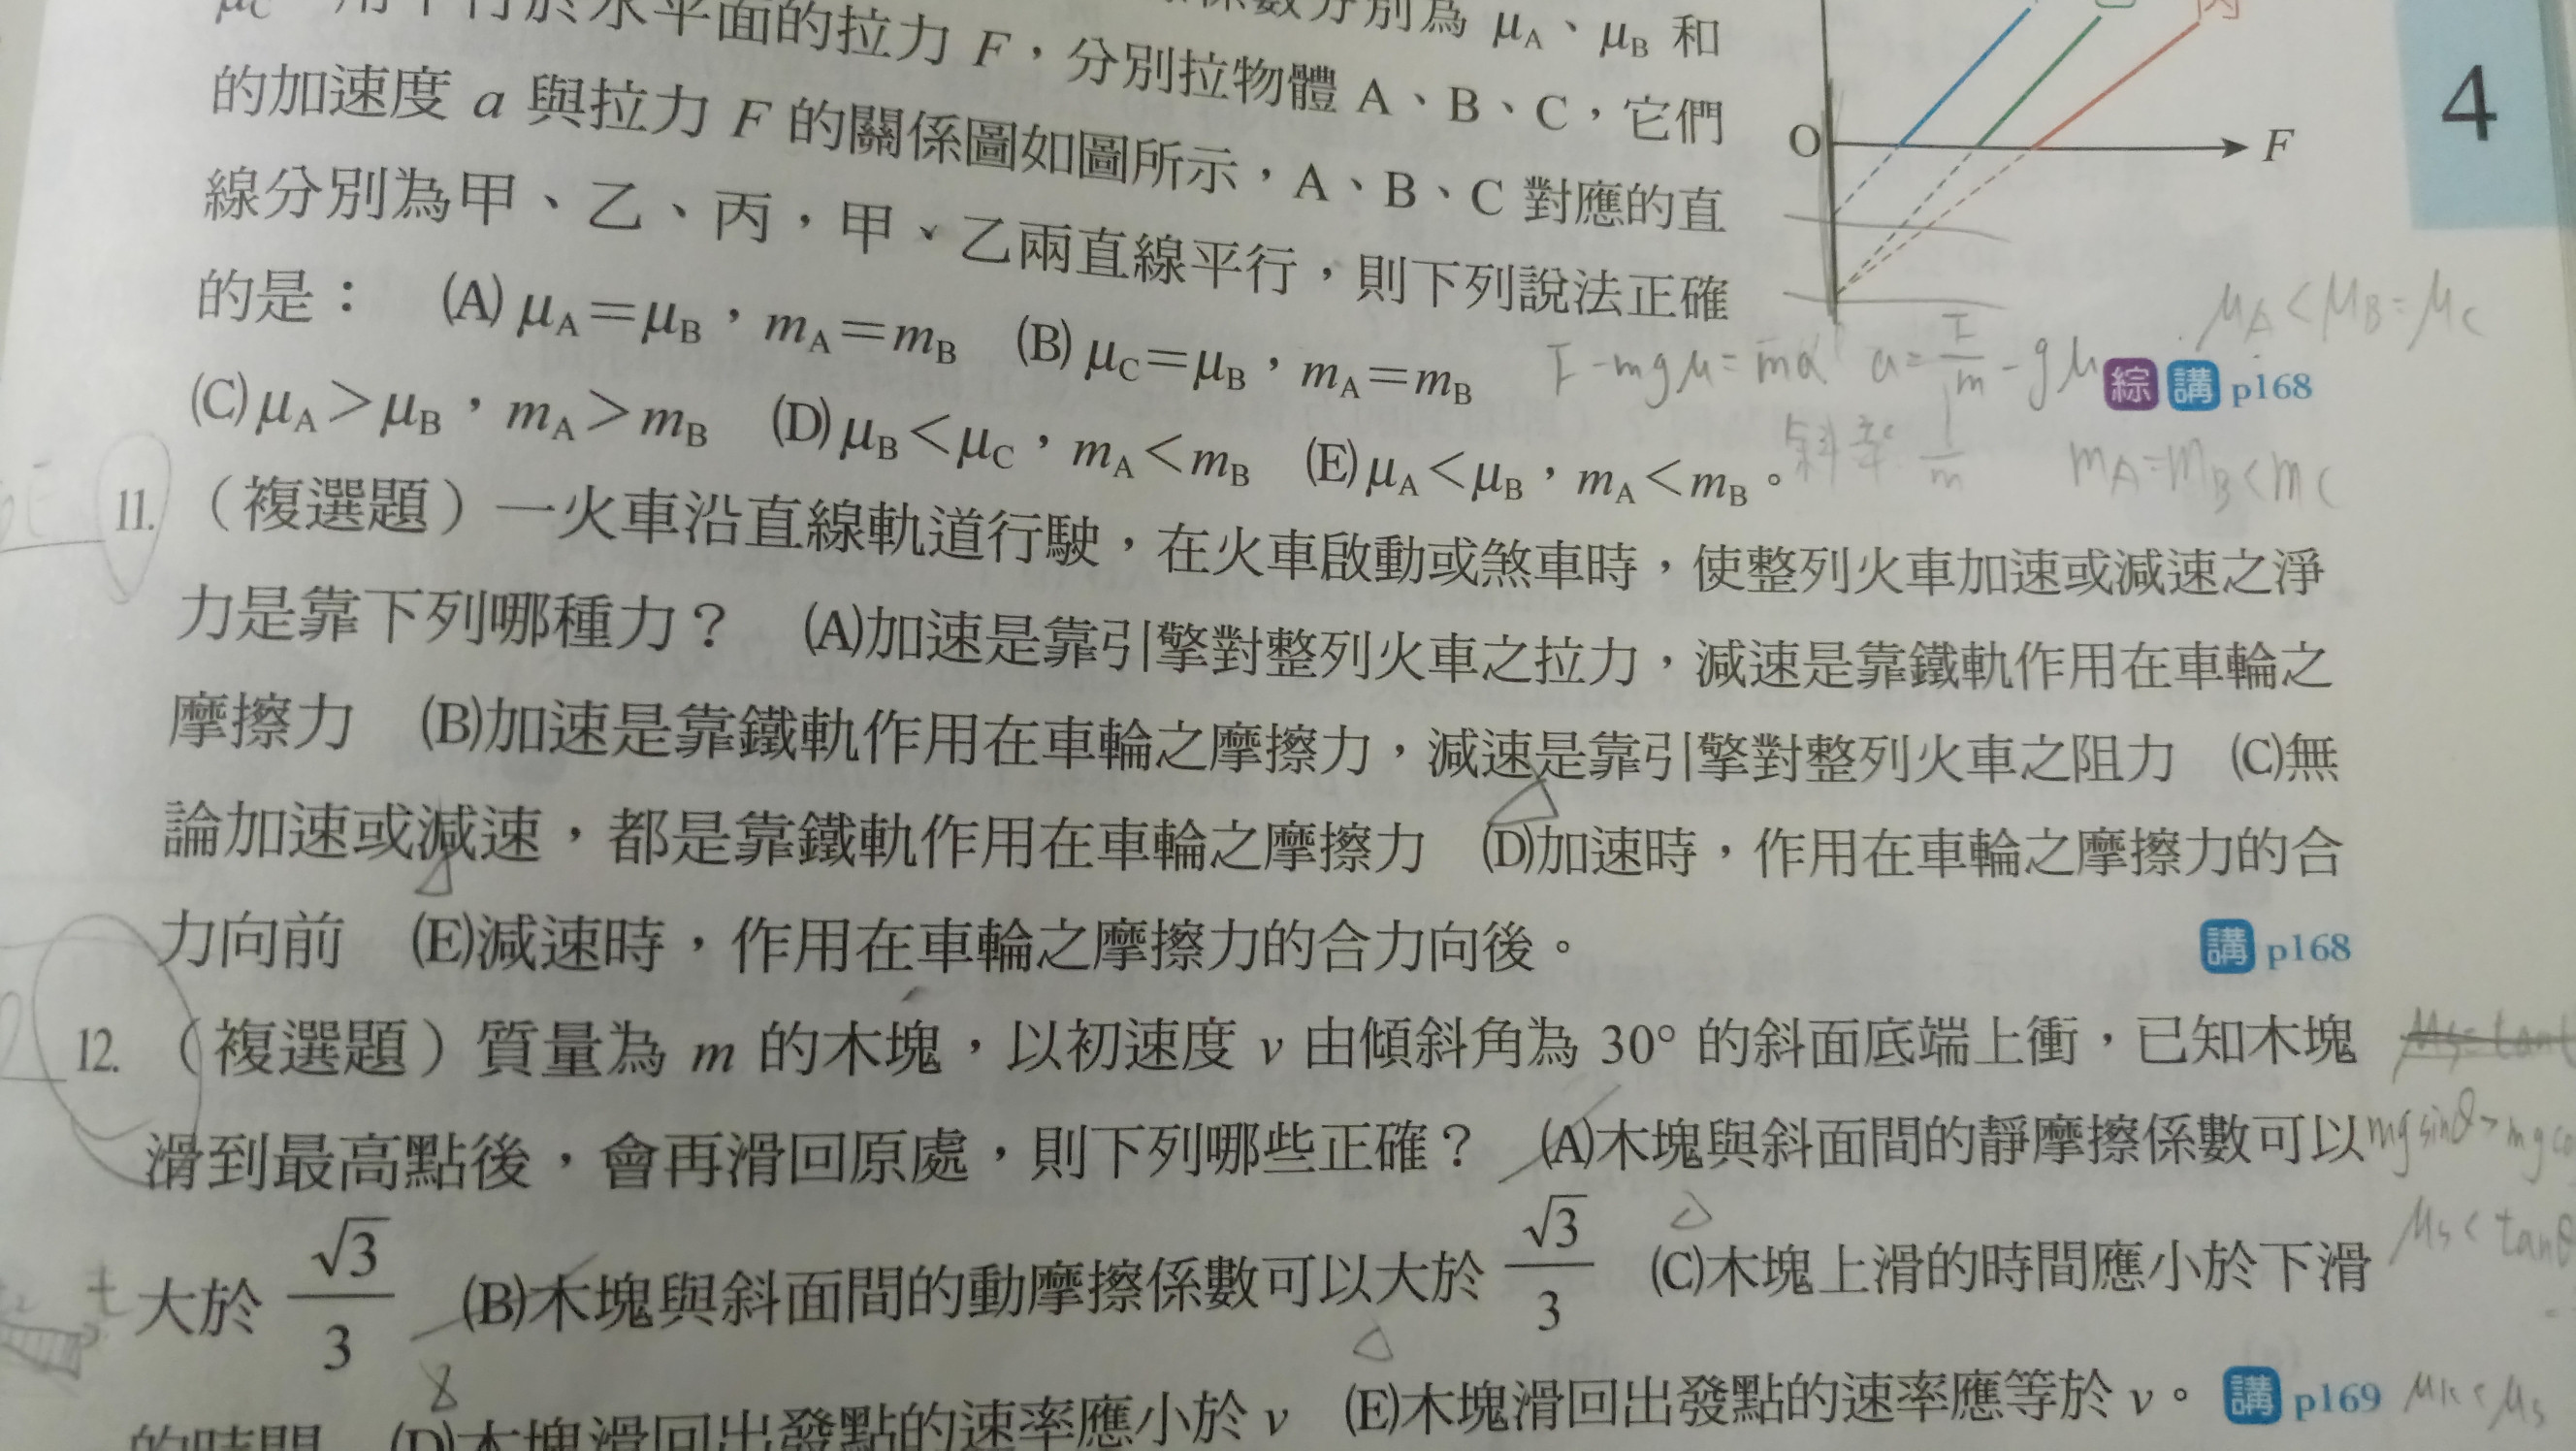 μC 用平行於水平面的拉力 F，分別拉物體 A、B、C，它們
係數分別為 μA、μB 和
的加速度 a 與拉力 F 的關係圖如圖所示，A、B、C 對應的直
線分別為甲、乙、丙，甲、乙兩直線平行，則下列說法正確
的是： (A) μA＝μB，mA＝mB (B) μC＝μB，mA＝mB
(C) μA＞μB，mA＞mB (D) μB＜μC，mA＜mB (E) μA＜μB，mA＜mB。
綜 講 p168
O
F
丙
4
μA < μB = μC
F - mgμ = ma a = F/m - gμ
斜率 1/m mA = mB < mC
11. （複選題）一火車沿直線軌道行駛，在火車啟動或煞車時，使整列火車加速或減速之淨
力是靠下列哪種力？ (A)加速是靠引擎對整列火車之拉力，減速是靠鐵軌作用在車輪之
摩擦力 (B)加速是靠鐵軌作用在車輪之摩擦力，減速是靠引擎對整列火車之阻力 (C)無
論加速或減速，都是靠鐵軌作用在車輪之摩擦力 (D)加速時，作用在車輪之摩擦力的合
力向前 (E)減速時，作用在車輪之摩擦力的合力向後。 講 p168
12. （複選題）質量為 m 的木塊，以初速度 v 由傾斜角為 30° 的斜面底端上衝，已知木塊
滑到最高點後，會再滑回原處，則下列哪些正確？ (A)木塊與斜面間的靜摩擦係數可以
mg sinθ > mg
大於 √3/3 (B)木塊與斜面間的動摩擦係數可以大於 √3/3 (C)木塊上滑的時間應小於下滑
μs < tanθ
的時間 (D)木塊滑回出發點的速率應小於 v (E)木塊滑回出發點的速率應等於 v。 講 p169
μk < μs